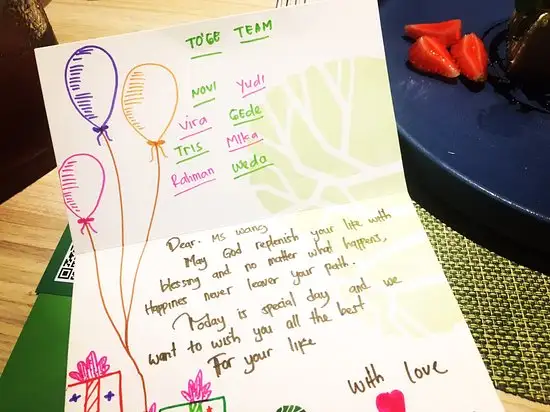 TO'GE TEAM
NOVI Yudi
Vira GEde
TRIS Mitka
Rahman Weda
Dear. Ms wang
May God replenish your life with
blessing and no matter what happens,
Happines never leaver your path.
Today is special day and we
want to wish you all the best
For your like
with love